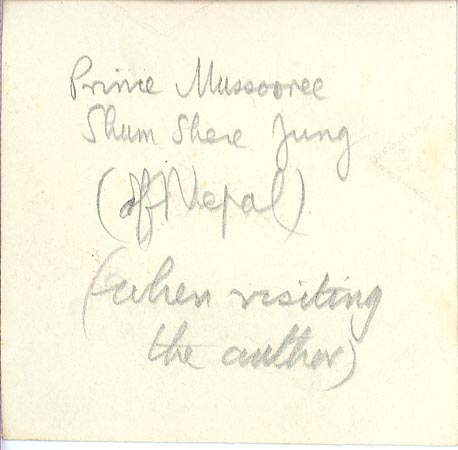 Prince Mussooree
Shum Shere Jung
(of Nepal)
(when visiting
the author)